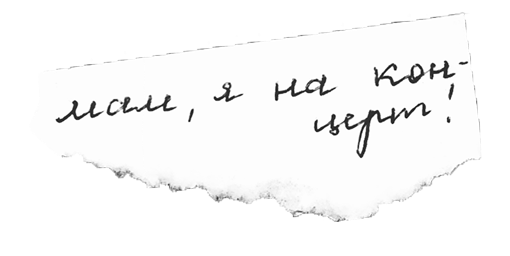 мам, я на кон-
церт!